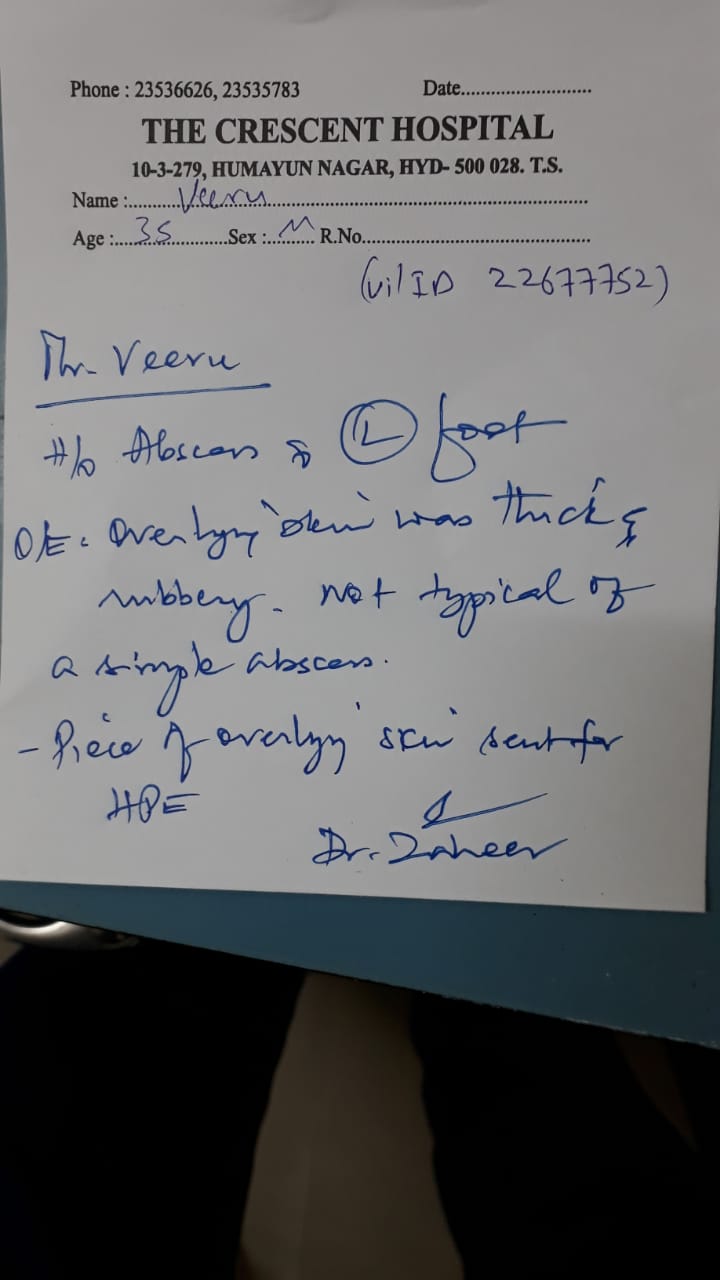 Phone : 23536626, 23535783 Date..........................
THE CRESCENT HOSPITAL
10-3-279, HUMAYUN NAGAR, HYD- 500 028. T.S.
Name :..........Veeru................................................................
Age :....35............Sex :....M.... R.No...............................................
(vil ID 22677752)
Mr. Veeru
H/o Abscess Ⓛ foot
O/E. Overlying skin was thick &
rubbery. Not typical of
a simple abscess.
- Piece of overlying skin sent for
HPE
Dr. Zaheer